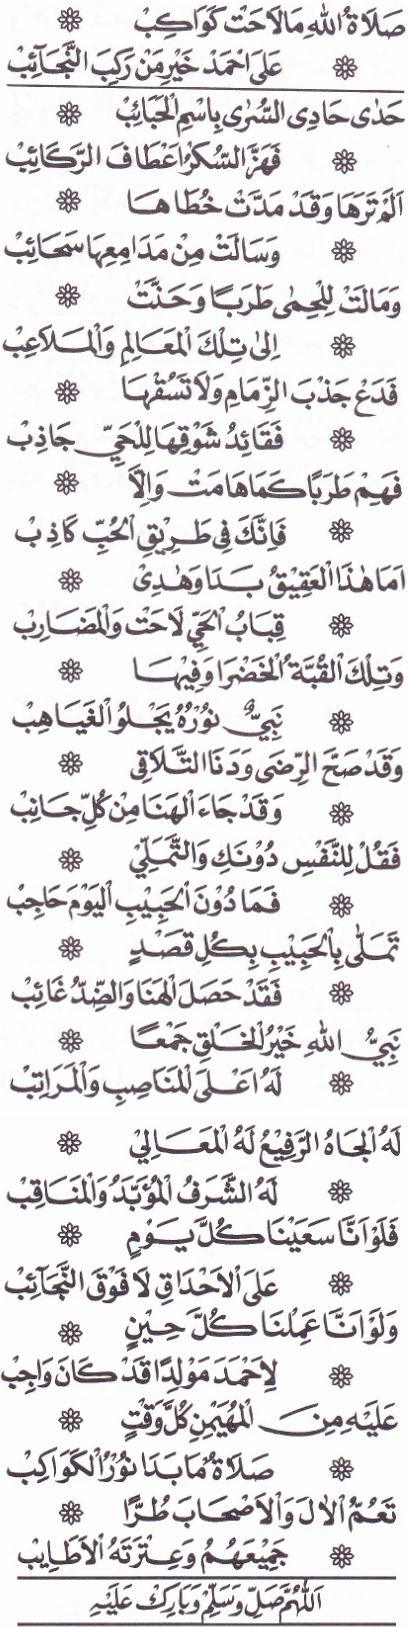 صَلَاةُ اللهِ مَا لَاحَتْ كَوَاكِبْ
عَلَى احْمَدْ خَيْرِ مَنْ رَكِبَ النَّجَائِبْ
حَدٰى حَادِى السُّرٰى بِاسْمِ الْحَبَائِبْ
فَهَزَّ السُّكْرُ اَعْطَافَ الرَّكَائِبْ
اَلَمْ تَرَهَا وَقَدْ مَدَّتْ خُطَاهَا
وَسَالَتْ مِنْ مَدَامِعِهَا سَحَائِبْ
وَمَالَتْ لِلْحِمٰى طَرَبًا وَحَنَّتْ
اِلٰى تِلْكَ الْمَعَالِمِ وَالْمَلَاعِبْ
فَدَعْ جَذْبَ الزِّمَامِ وَلَا تَسُقْهَا
فَقَائِدُ شَوْقِهَا لِلْحَيِّ جَاذِبْ
فَهِمْ طَرَبًا كَمَا هَامَتْ وَاِلَّا
فَاِنَّكَ فِى طَرِيْقِ الْحُبِّ كَاذِبْ
اَمَا هٰذَا الْعَقِيْقُ بَدَا وَهٰذِىْ
قِبَابُ الْحَيِّ لَاحَتْ وَالْمَضَارِبْ
وَتِلْكَ الْقُبَّةُ الْخَضْرَا وَفِيْهَا
نَبِيٌّ نُوْرُهُ يَجْلُو الْغَيَاهِبْ
وَقَدْ صَحَّ الرِّضٰى وَدَنَا التَّلَاقِى
وَقَدْ جَاءَ الْهَنَا مِنْ كُلِّ جَانِبْ
فَقُلْ لِلنَّفْسِ دُوْنَكِ وَالتَّمَلِّيْ
فَمَا دُوْنَ الْحَبِيْبِ الْيَوْمَ حَاجِبْ
تَمَلّٰى بِالْحَبِيْبِ بِكُلِّ قَصْدٍ
فَقَدْ حَصَلَ الْهَنَا وَالضِّدُّ غَائِبْ
نَبِيُّ اللهِ خَيْرُ الْخَلْقِ جَمْعًا
لَهُ اَعْلَى الْمَنَاصِبِ وَالْمَرَاتِبْ
لَهُ الْجَاهُ الرَّفِيْعُ لَهُ الْمَعَالِيْ
لَهُ الشَّرَفُ الْمُؤَبَّدُ وَالْمَنَاقِبْ
فَلَوْ اَنَّا سَعَيْنَا كُلَّ يَوْمٍ
عَلَى الْاَحْدَاقِ لَا فَوْقَ النَّجَائِبْ
وَلَوْ اَنَّا عَمِلْنَا كُلَّ حِيْنٍ
لِاَحْمَدَ مَوْلِدًا قَدْ كَانَ وَاجِبْ
عَلَيْهِ مِنَ الْمُهَيْمِنِ كُلَّ وَقْتٍ
صَلَاةٌ مَا بَدَا نُوْرُ الْكَوَاكِبْ
تَعُمُّ الْاٰلَ وَالْاَصْحَابَ طُرًّا
جَمِيْعَهُمُ وَعِتْرَتَهُ الْاَطَايِبْ
اَللّٰهُمَّ صَلِّ وَسَلِّمْ وَبَارِكْ عَلَيْهِ